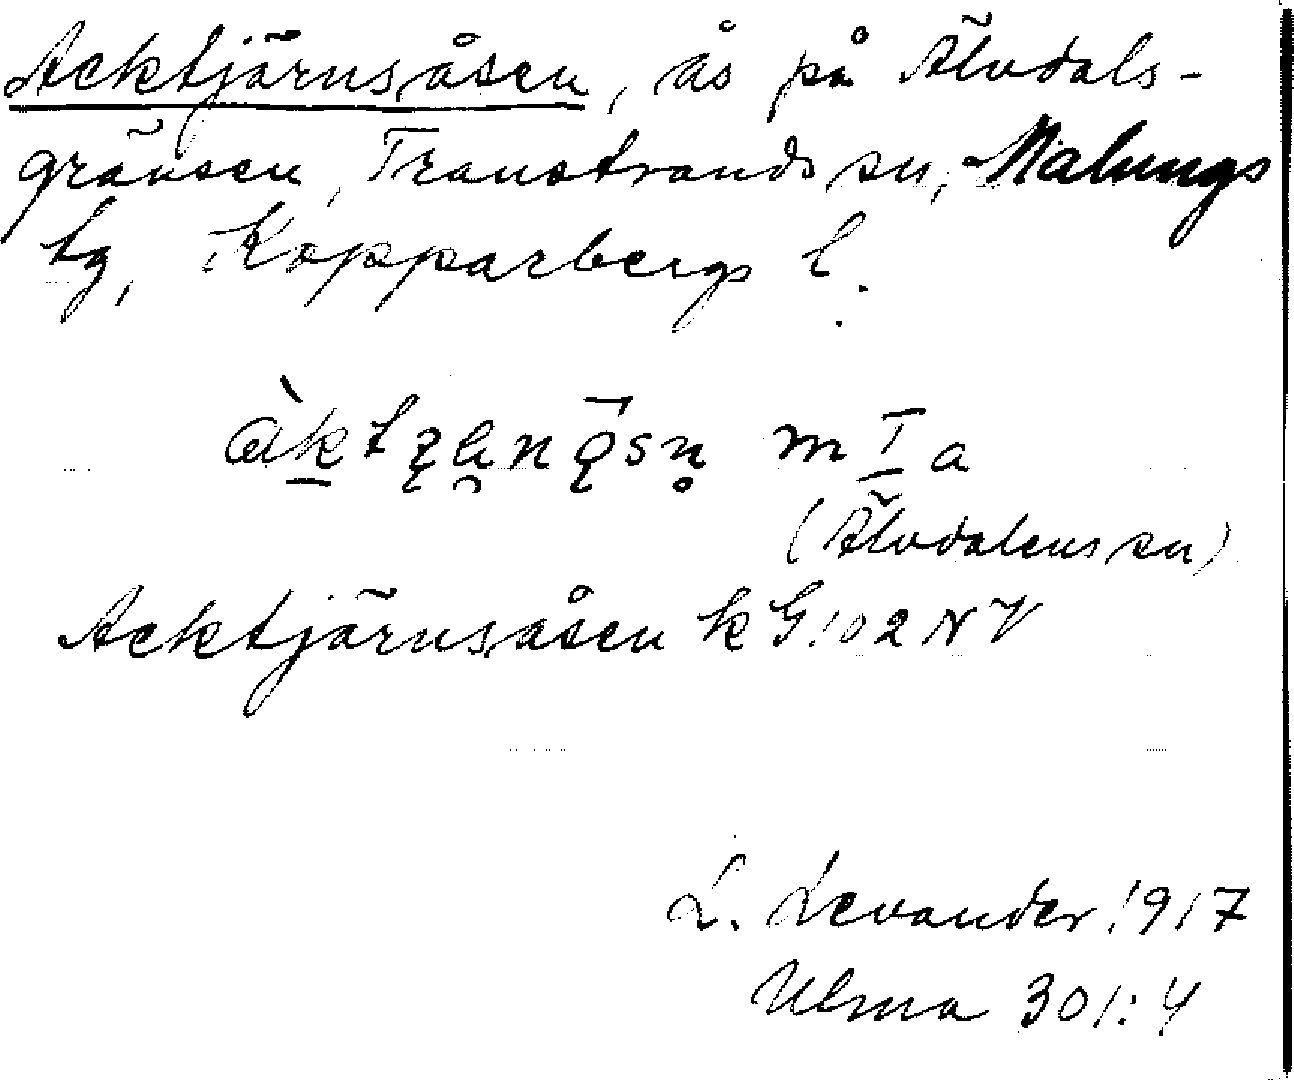 Acktjärnsåsen, ås på Älvdals-
gränsen, Transtrands sn, Malungs
tg, Kopparbergs l.
m I a
(Älvdalens sn)
Acktjärnsåsen k G 102 NV
L. Levander 1917
Ulma 301:4